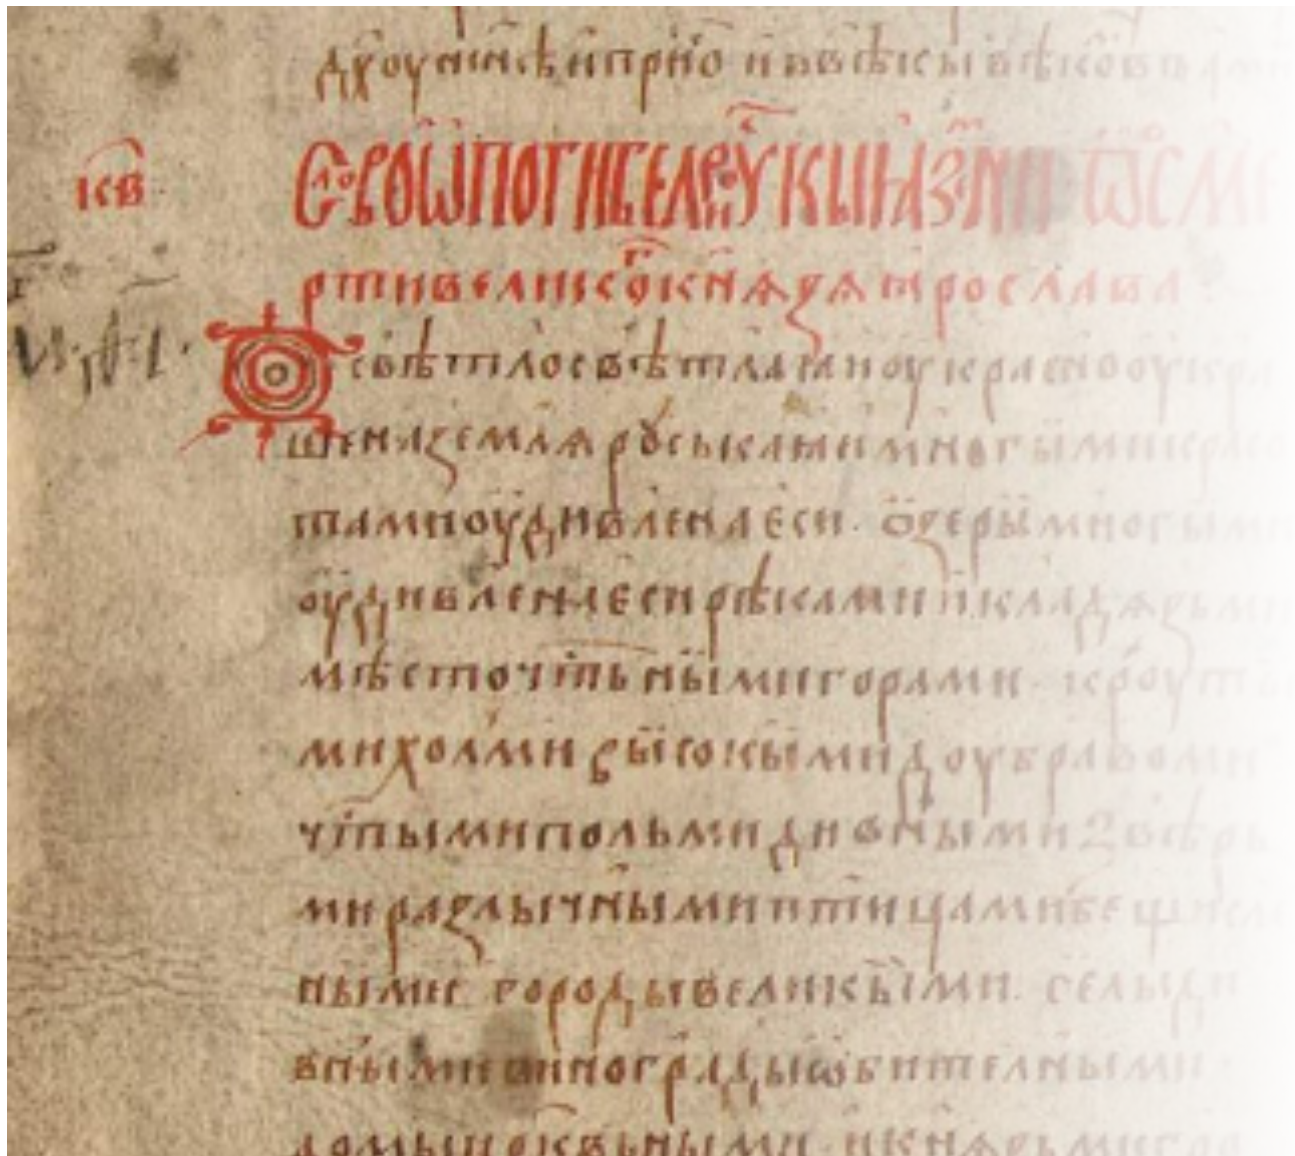 дх҃оу нн҃ѣ и прн҃о и в вѣкы вѣковъ
кв҃
Слово ѡ погибели Рускыꙗ земли ѡ сме
рти великого кнѧзѧ Ꙗрослава
Ѡ свѣтло свѣтлаꙗ и оукрасно оукра
шена землѧ руськаꙗ и многыми красо
тами оудивлена еси. озеры многыми
оудивлена еси рѣками и кладѧзьми
мѣсточьстьными горами. кроуты
ми холми высокыми доубравоми
чс҃тыми польми дивными звѣрь
ми разлычными птицами бещисле
ными. городы великыми. селы ди
вными винограды ѡбителными
домы црк҃вьными. и кнѧзьми гро